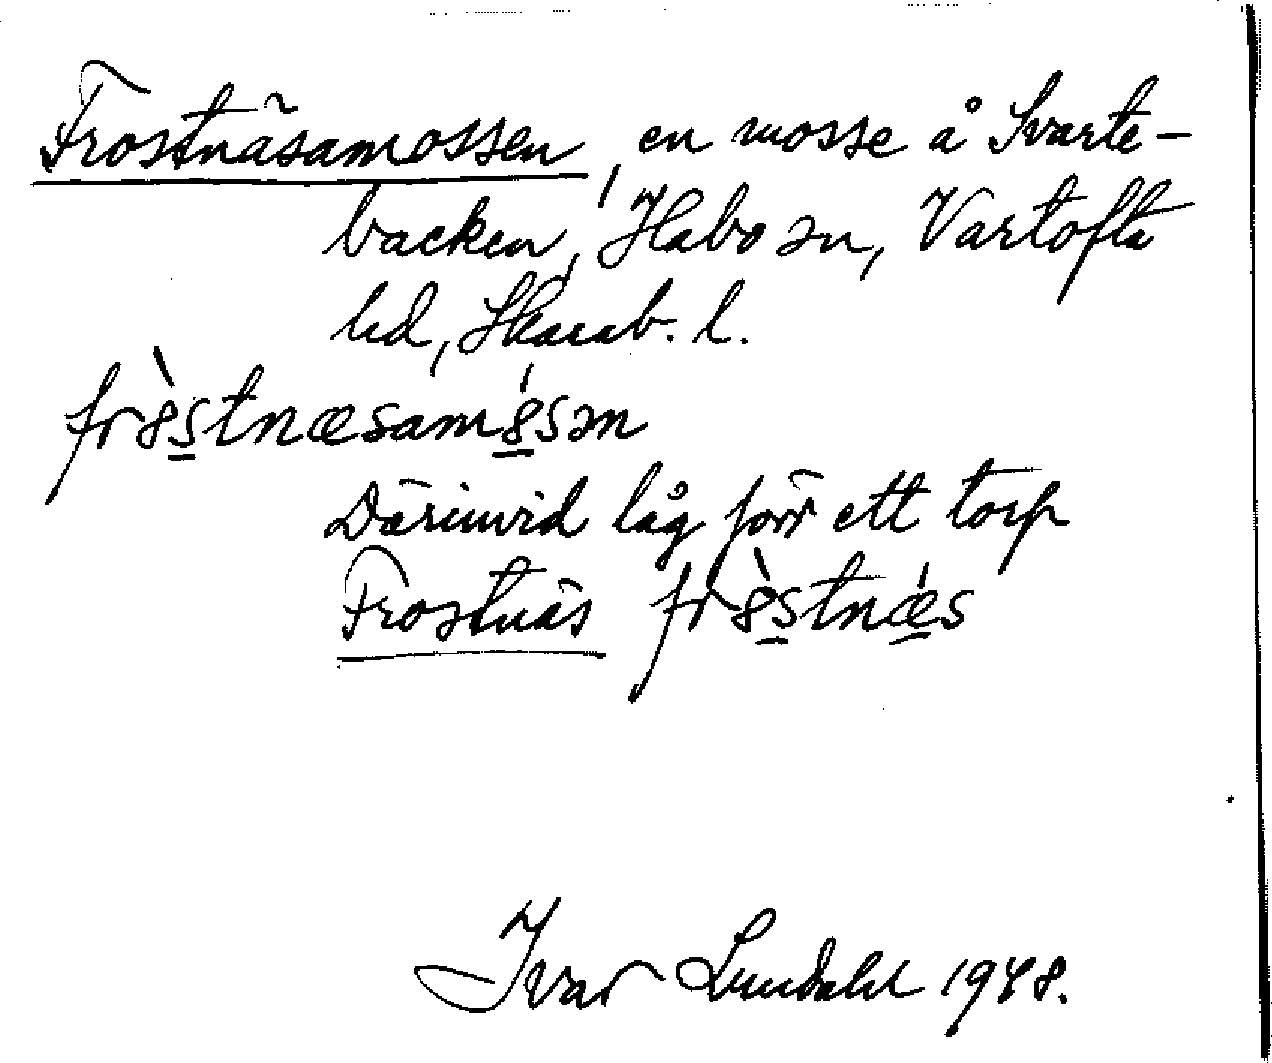 Frostnäsamossen, en mosse å Svarte-
backen, Habo sn, Vartofta
hd, Skarab. l.
fr8̀s̱tnæsam8̱́sən
Därinvid låg förr ett torp
Frostnäs fr8̀s̱tnǽ̱s
Ivar Lundahl 1948.